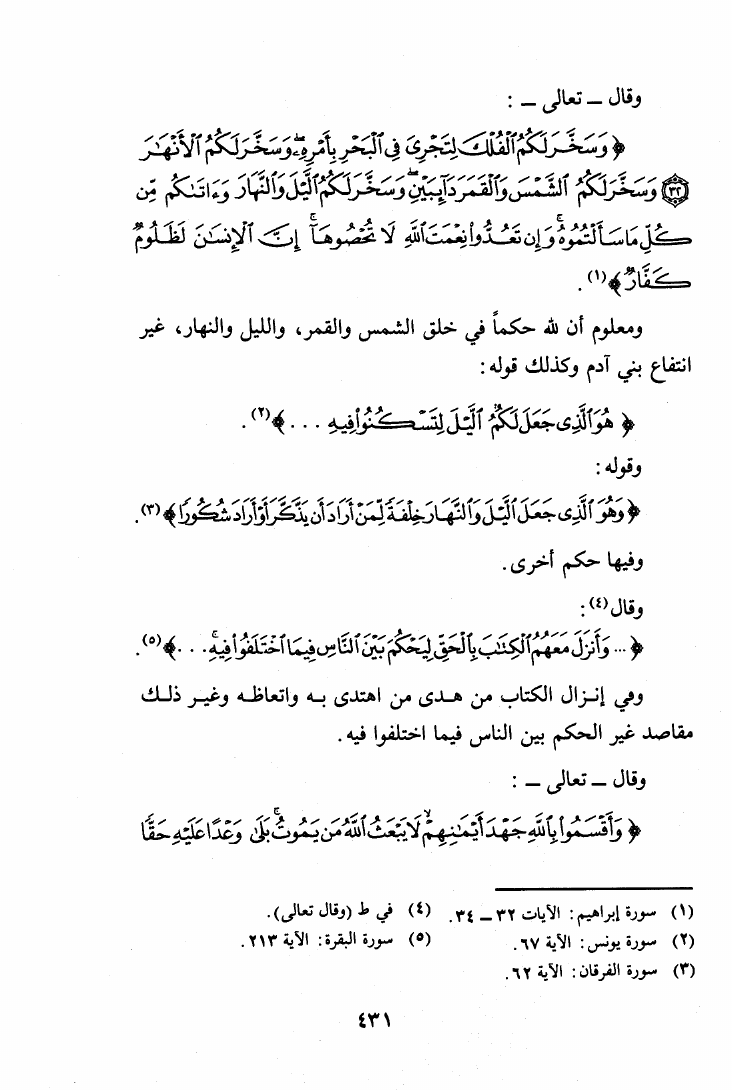 وقال ــ تعالى ــ :
﴿ وَسَخَّرَ لَكُمُ ٱلْفُلْكَ لِتَجْرِىَ فِى ٱلْبَحْرِ بِأَمْرِهِۦ ۖ وَسَخَّرَ لَكُمُ ٱلْأَنْهَٰرَ
﴿٣٢﴾ وَسَخَّرَ لَكُمُ ٱلشَّمْسَ وَٱلْقَمَرَ دَآئِبَيْنِ ۖ وَسَخَّرَ لَكُمُ ٱلَّيْلَ وَٱلنَّهَارَ وَءَاتَىٰكُم مِّن
كُلِّ مَا سَأَلْتُمُوهُ ۚ وَإِن تَعُدُّوا۟ نِعْمَتَ ٱللَّهِ لَا تُحْصُوهَآ ۗ إِنَّ ٱلْإِنسَٰنَ لَظَلُومٌ
كَفَّارٌ ﴾(١).
ومعلوم أن لله حكماً في خلق الشمس والقمر، والليل والنهار، غير
انتفاع بني آدم وكذلك قوله:
﴿ هُوَ ٱلَّذِى جَعَلَ لَكُمُ ٱلَّيْلَ لِتَسْكُنُوا۟ فِيهِ . . . ﴾(٢).
وقوله:
﴿ وَهُوَ ٱلَّذِى جَعَلَ ٱلَّيْلَ وَٱلنَّهَارَ خِلْفَةً لِّمَنْ أَرَادَ أَن يَذَّكَّرَ أَوْ أَرَادَ شُكُورًا ﴾(٣).
وفيها حكم أخرى.
وقال(٤):
﴿ ... وَأَنزَلَ مَعَهُمُ ٱلْكِتَٰبَ بِٱلْحَقِّ لِيَحْكُمَ بَيْنَ ٱلنَّاسِ فِيمَا ٱخْتَلَفُوا۟ فِيهِ ۚ . . . ﴾(٥).
وفي إنـزال الكتاب من هـدى من اهتدى بـه واتعاظـه وغيـر ذلـك
مقاصد غير الحكم بين الناس فيما اختلفوا فيه.
وقال ــ تعالى ــ :
﴿ وَأَقْسَمُوا۟ بِٱللَّهِ جَهْدَ أَيْمَٰنِهِمْ ۙ لَا يَبْعَثُ ٱللَّهُ مَن يَمُوتُ ۚ بَلَىٰ وَعْدًا عَلَيْهِ حَقًّا
(١) سورة إبراهيم: الآيات ٣٢ ــ ٣٤.
(٢) سورة يونس: الآية ٦٧.
(٣) سورة الفرقان: الآية ٦٢.
(٤) في ط (وقال تعالى).
(٥) سورة البقرة: الآية ٢١٣.
٤٣١